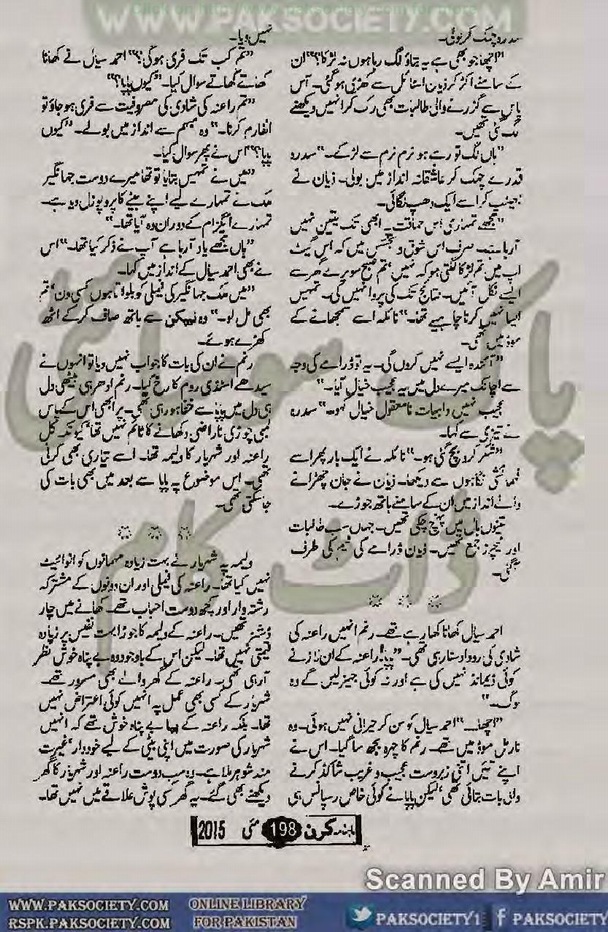 WWW.PAKSOCIETY.COM
سدرہ چمک کر بولی۔
"اچھا جو بھی ہے یہ بتاؤ لگ رہا ہوں نہ لڑکا؟" ان
کے سامنے اکڑ کر ذیان اسٹائل سے کھڑی ہو گئی۔ آس
پاس سے گزرنے والی طالبات بھی رک کر انہیں دیکھنے
لگ گئی تھیں۔
"ہاں لگ تو رہے ہو نرم نرم سے لڑکے۔" سدرہ
قدرے جھک کر عاشقانہ انداز میں بولی۔ ذیان نے
جھینپ کر اسے ایک دھپ لگائی۔
"مجھے تمہاری اس حماقت پہ ابھی تک یقین نہیں
آ رہا ہے۔ صرف اس شوق و تجسس میں کہ اس گیٹ
اپ میں تم لڑکا لگتی ہو کہ نہیں، تم صبح سویرے گھر سے
ایسے نکل آئیں۔ نتائج تک کی پروا نہیں کی۔ تمہیں
ایسا نہیں کرنا چاہیے تھا۔" نائلہ اسے سمجھانے کے
موڈ میں تھی۔
"آئندہ ایسے نہیں کروں گی۔ یہ تو ڈرامے کی وجہ
سے اچانک میرے دل میں یہ عجیب خیال آیا۔"
"عجیب نہیں واہیات، نامعقول خیال کہو۔" سدرہ
نے تیزی سے کہا۔
"شکر کرو بچ گئی ہو۔" نائلہ نے ایک بار پھر اسے
فہمائشی نگاہوں سے دیکھا۔ ذیان نے جان چھڑانے
والے انداز میں ان کے سامنے ہاتھ جوڑے۔
تینوں ہال میں پہنچ چکی تھیں۔ جہاں سب طالبات
اور ٹیچرز جمع تھیں۔ ذیان ڈرامے کی ٹیم کی طرف
چلی گئی۔
* * *
احمد سیال کھانا کھا رہے تھے۔ رنم انہیں راعنہ کی
شادی کی روداد سنا رہی تھی۔ "پپا! راعنہ کے ان لاز نے
کوئی ڈیمانڈ نہیں کی ہے اور نہ کوئی جہیز لیں گے وہ
لوگ۔"
"اچھا۔" احمد سیال کو سن کر حیرانی نہیں ہوئی۔ وہ
نارمل موڈ میں تھے۔ رنم کا چہرہ بجھ سا گیا۔ اس نے
اپنے تئیں اتنی زبردست عجیب و غریب شاکڈ کرنے
والی بات بتائی تھی، لیکن پاپا نے کوئی خاص رسپانس ہی
نہیں دیا۔
"تم کب تک فری ہو گی؟" احمد سیال نے کھانا
کھاتے کھاتے سوال کیا۔ "کیوں پاپا؟"
"تم راعنہ کی شادی کی مصروفیت سے فری ہو جاؤ تو
انفارم کرنا۔" وہ مبہم سے انداز میں بولے۔ "کیوں
پپا؟" اس نے پھر سوال کیا۔
"میں نے تمہیں بتایا تو تھا میرے دوست جہانگیر
ملک نے تمہارے لیے اپنے بیٹے کا پروپوزل دیا ہے۔
تمہارے ایگزام کے دوران وہ آیا تھا۔"
"ہاں مجھے یاد آ رہا ہے آپ نے ذکر کیا تھا۔" اس
نے بھی احمد سیال کے انداز میں کہا۔
"میں ملک جہانگیر کی فیملی کو بلواتا ہوں کسی دن، تم
بھی مل لو۔" وہ نیپکن سے ہاتھ صاف کر کے اٹھ
کھڑے ہوئے۔
رنم نے ان کی بات کا جواب نہیں دیا تو انہوں نے
سیدھے اسٹڈی روم کا رخ کیا۔ رنم ادھر ہی بیٹھی دل
ہی دل میں پاپا سے خفا ہو رہی تھی۔ پر ابھی اس کے پاس
لمبی چوڑی ناراضی دکھانے کا ٹائم نہیں تھا، کیونکہ کل
راعنہ اور شہریار کا ولیمہ تھا۔ اسے تیاری بھی کرنی
تھی۔ اس موضوع پہ پاپا سے بعد میں بھی بات کی
جا سکتی تھی۔
* * *
ولیمہ پہ شہریار نے بہت زیادہ مہمانوں کو انوائیٹ
نہیں کیا تھا۔ راعنہ کی فیملی اور ان دونوں کے مشترکہ
رشتہ دار اور کچھ دوست احباب تھے۔ کھانے میں چار
ڈشز تھیں۔ راعنہ کے ولیمہ کا جوڑا بہت نفیس پر زیادہ
قیمتی نہیں تھا۔ لیکن اس کے باوجود وہ بے پناہ خوش نظر
آ رہی تھی۔ راعنہ کے گھر والے بھی مسرور تھے۔
شہریار کے کسی بھی عمل پہ انہیں کوئی اعتراض نہیں
تھا۔ بلکہ راعنہ کے پپا بے پناہ خوش تھے کہ انہیں
شہریار کی صورت میں اپنی بیٹی کے لیے خوددار، غیرت
مند شوہر ملا ہے۔ وہ سب دوست راعنہ اور شہریار کا گھر
دیکھنے بھی گئے۔ یہ گھر کسی پوش علاقے میں نہیں تھا۔
ماہنامہ کرن 198 مئی 2015
پاک سوسائٹی
ڈاٹ کام
Scanned By Amir
WWW.PAKSOCIETY.COM ONLINE LIBRARY PAKSOCIETY1 f PAKSOCIETY
RSPK.PAKSOCIETY.COM FOR PAKISTAN